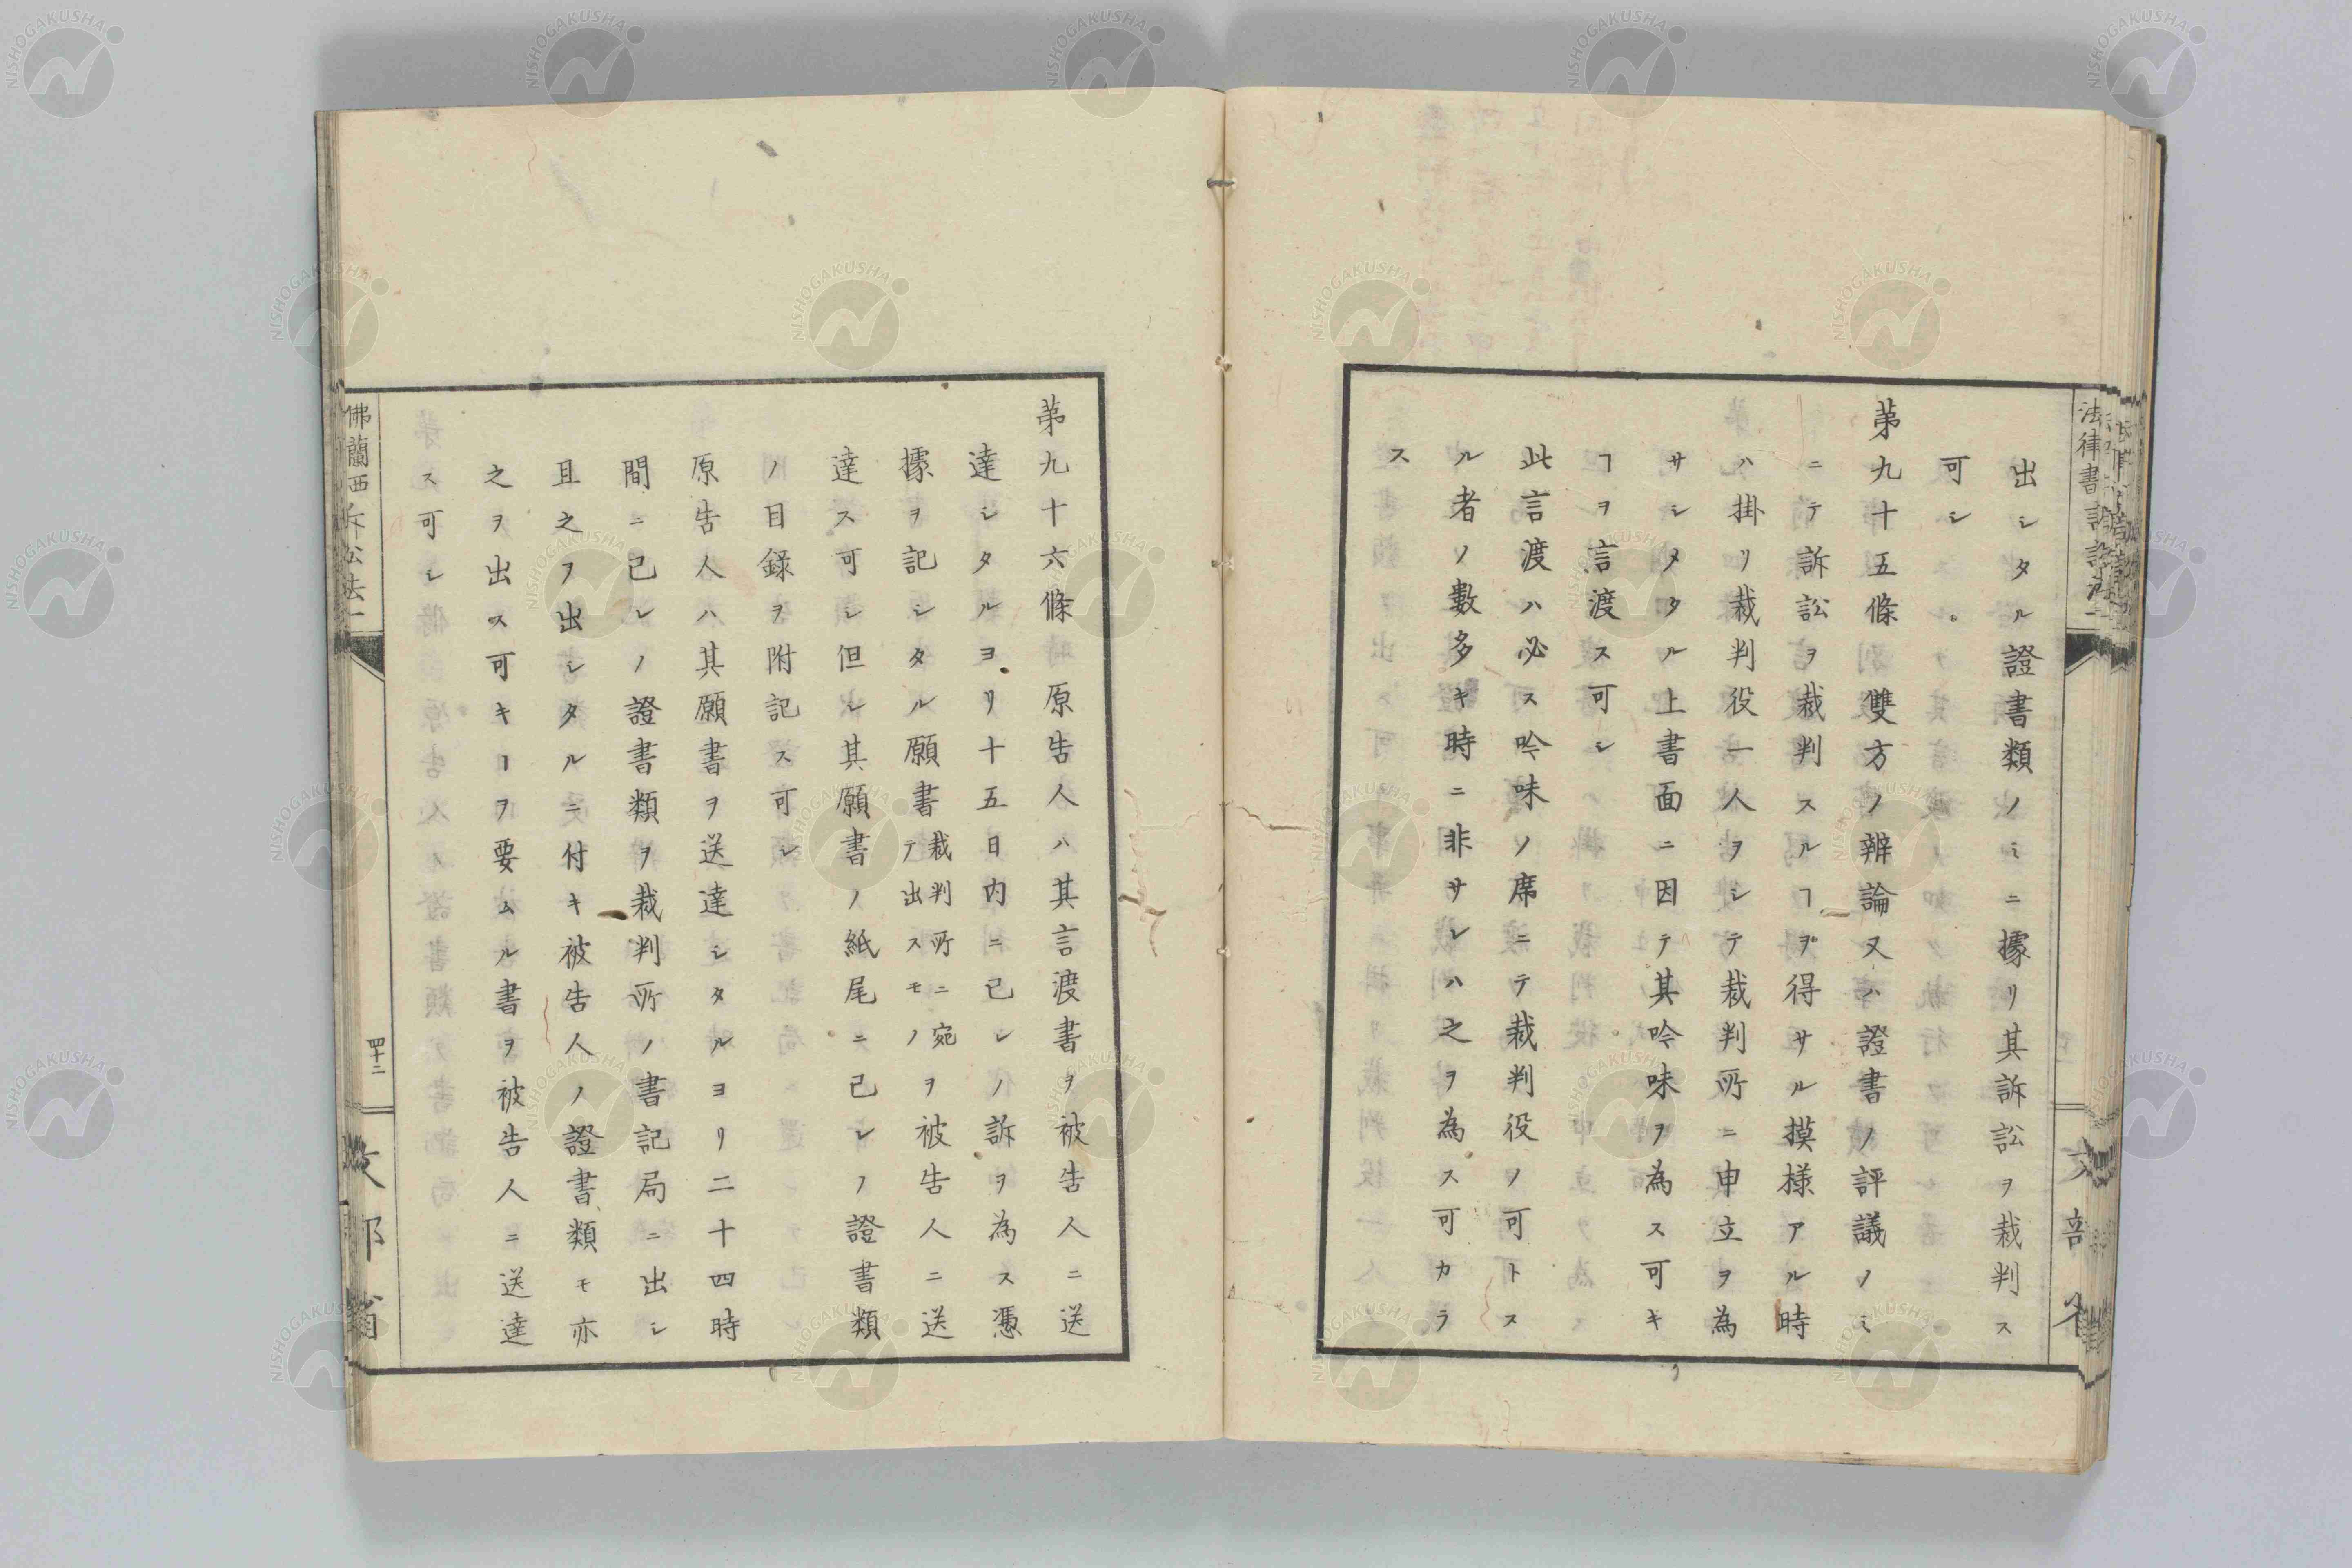 出シタル證書類ノミニ據リ其訴訟ヲ裁判ス
可シ
第九十五條 雙方ノ辨論又ハ證書ノ評議ノミ
ニテ訴訟ヲ裁判スルヿヲ得サル摸様アル時
ハ掛リ裁判役一人ヲシテ裁判所ニ申立ヲ為
サシメタル上書面ニ因テ其吟味ヲ為ス可キ
ヿヲ言渡ス可シ
此言渡ハ必ス吟味ノ席ニテ裁判役ノ可トス
ル者ノ數多キ時ニ非サレハ之ヲ為ス可カラ
ス
第九十六條 原告人ハ其言渡書ヲ被告人ニ送
達シタルヨリ十五日内ニ己レノ訴ヲ為ス憑
據ヲ記シタル願書裁判所ニ宛テ出スモノヲ被告人ニ送
達ス可シ但シ其願書ノ紙尾ニ己レノ證書類
ノ目録ヲ附記ス可シ
原告人ハ其願書ヲ送達シタルヨリ二十四時
間ニ己レノ證書類ヲ裁判所ノ書記局ニ出シ
且之ヲ出シタルニ付キ被告人ノ證書類モ亦
之ヲ出ス可キヿヲ要ムル書ヲ被告人ニ送達
ス可シ
佛蘭西訴訟法一
四十二
文部省
NISHOGAKUSHA